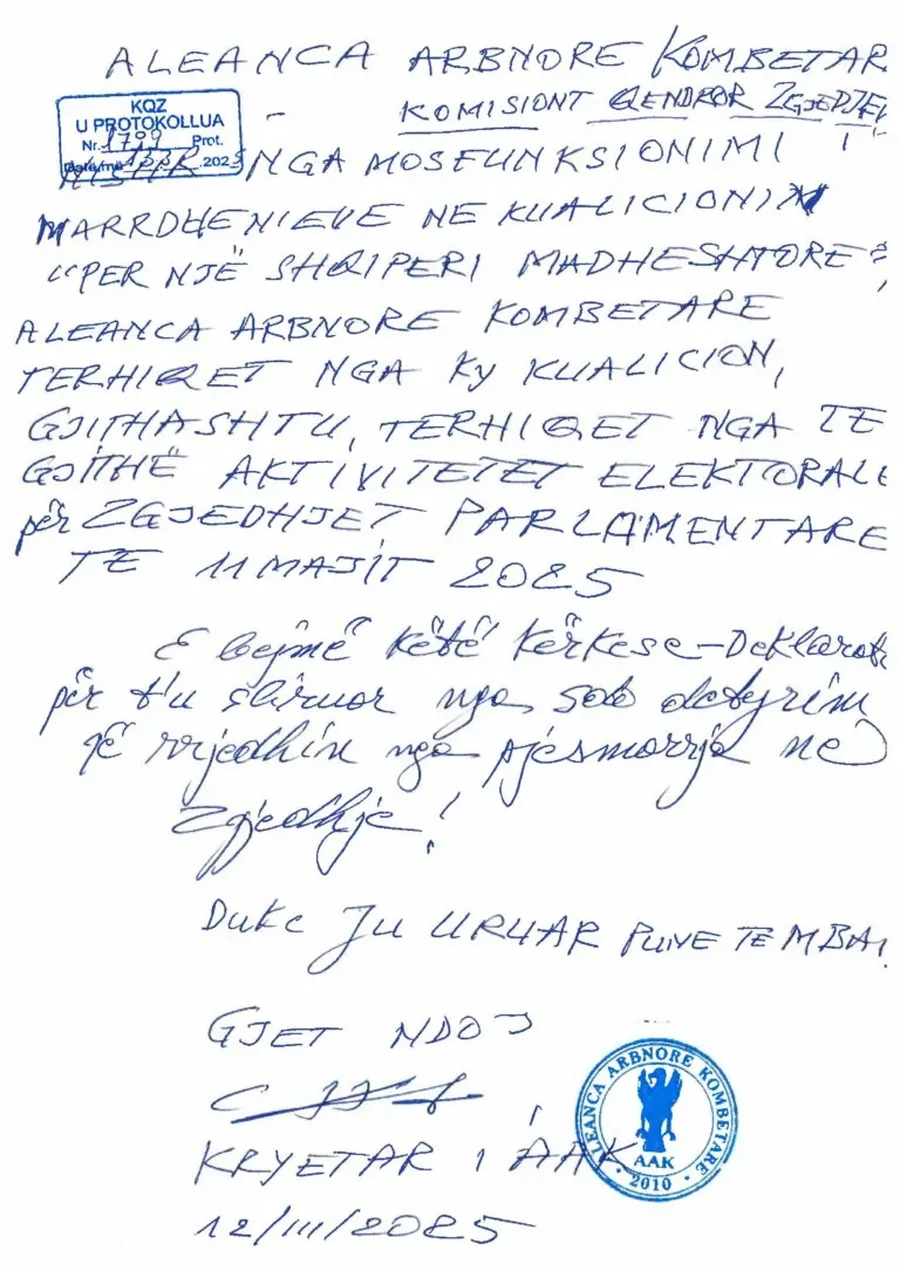 ALEANCA ARBNORE KOMBETAR
KOMISIONT QENDROR ZGJEDJE
KQZ
U PROTOKOLLUA
Nr. 1799 Prot.
Datë/me 2025
NISUR NGA MOSFUNKSIONIMI I
MARRDHENIEVE NE KUALICIONIN
"PER NJË SHQIPERI MADHESHTORE",
ALEANCA ARBNORE KOMBETARE
TERHIQET NGA KY KUALICION,
GJITHASHTU, TERHIQET NGA TE
GJITHË AKTIVITETET ELEKTORALE
për ZGJEDHJET PARLAMENTARE
TE 11 MAJIT 2025
E bejmë këtë kërkese-Deklaratë
për t'u sliruar nga sob detyrim
që rrjedhin nga pjesmorrja në
Zgjedhje!
Duke Ju URUAR PUNE TE MBA
GJET NDOJ
KRYETAR I AAK
12/III/2025
ALEANCA ARBNORE KOMBETARE
AAK
2010